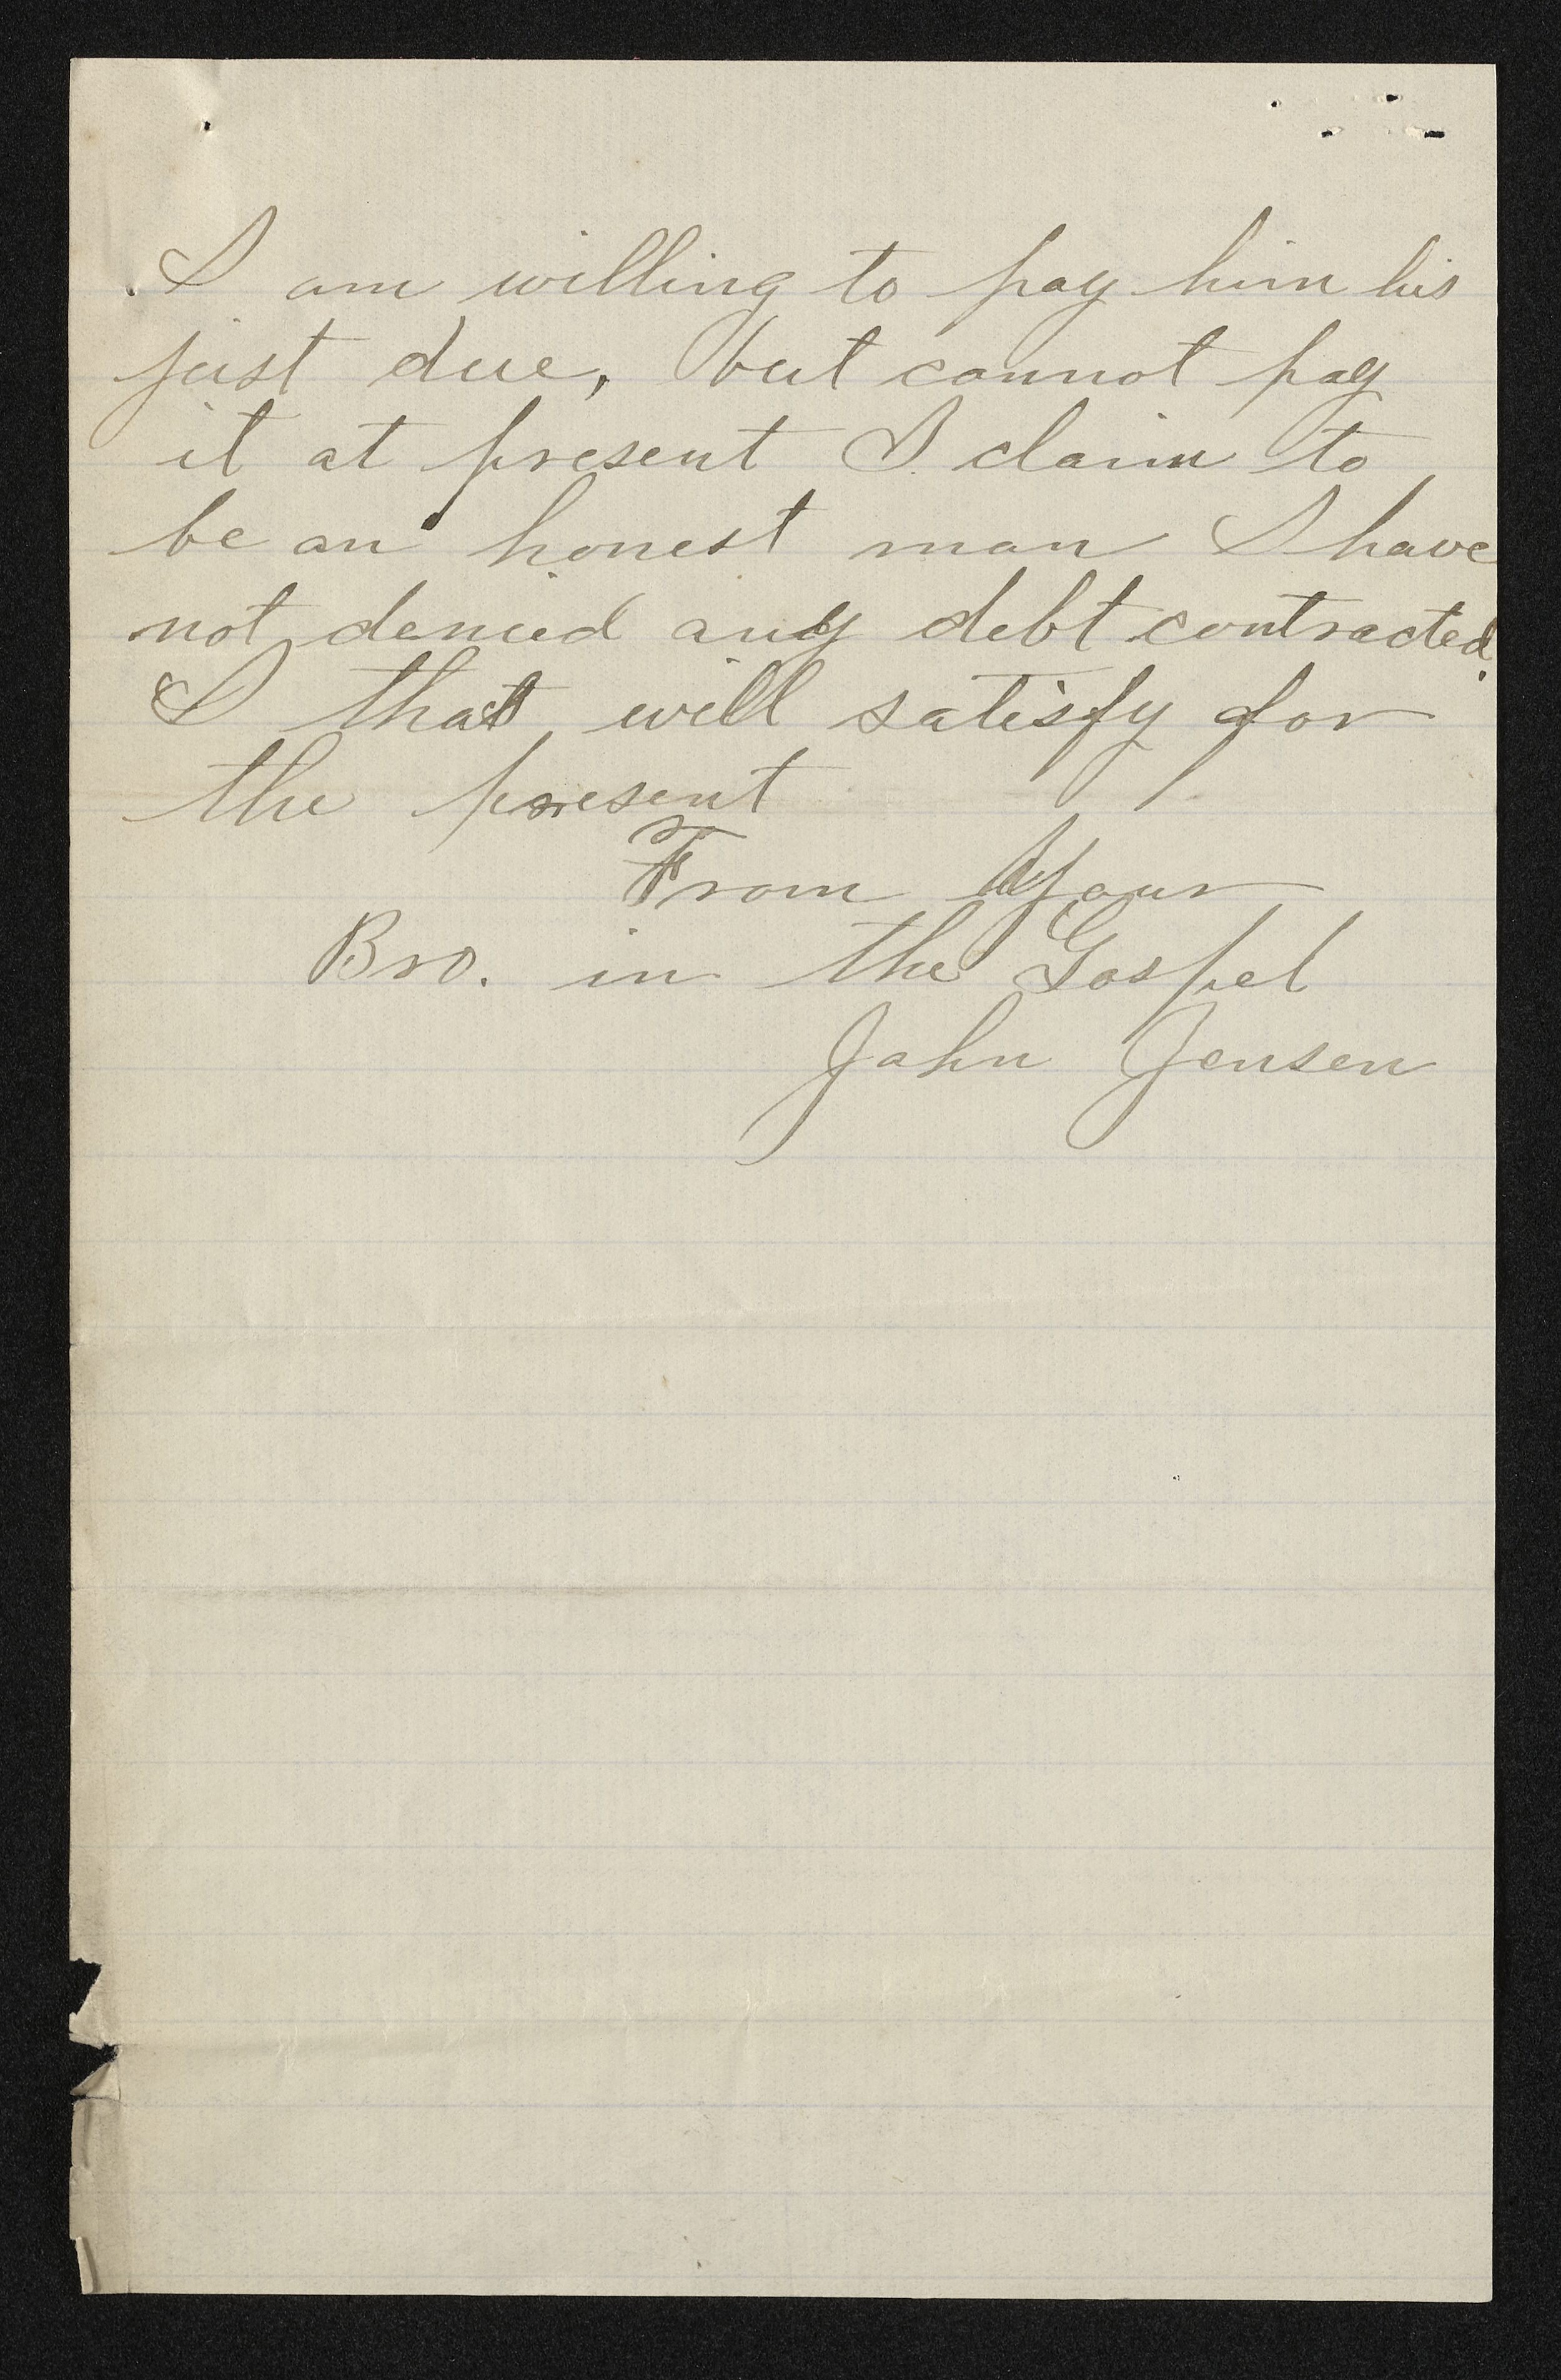 I am willing to pay him his
just due, but cannot pay
it at present I claim to
be an honest man I have
not denied any debt contracted.
I that will satisfy for
the present
From Your
Bro. in the Gospel
John Jensen